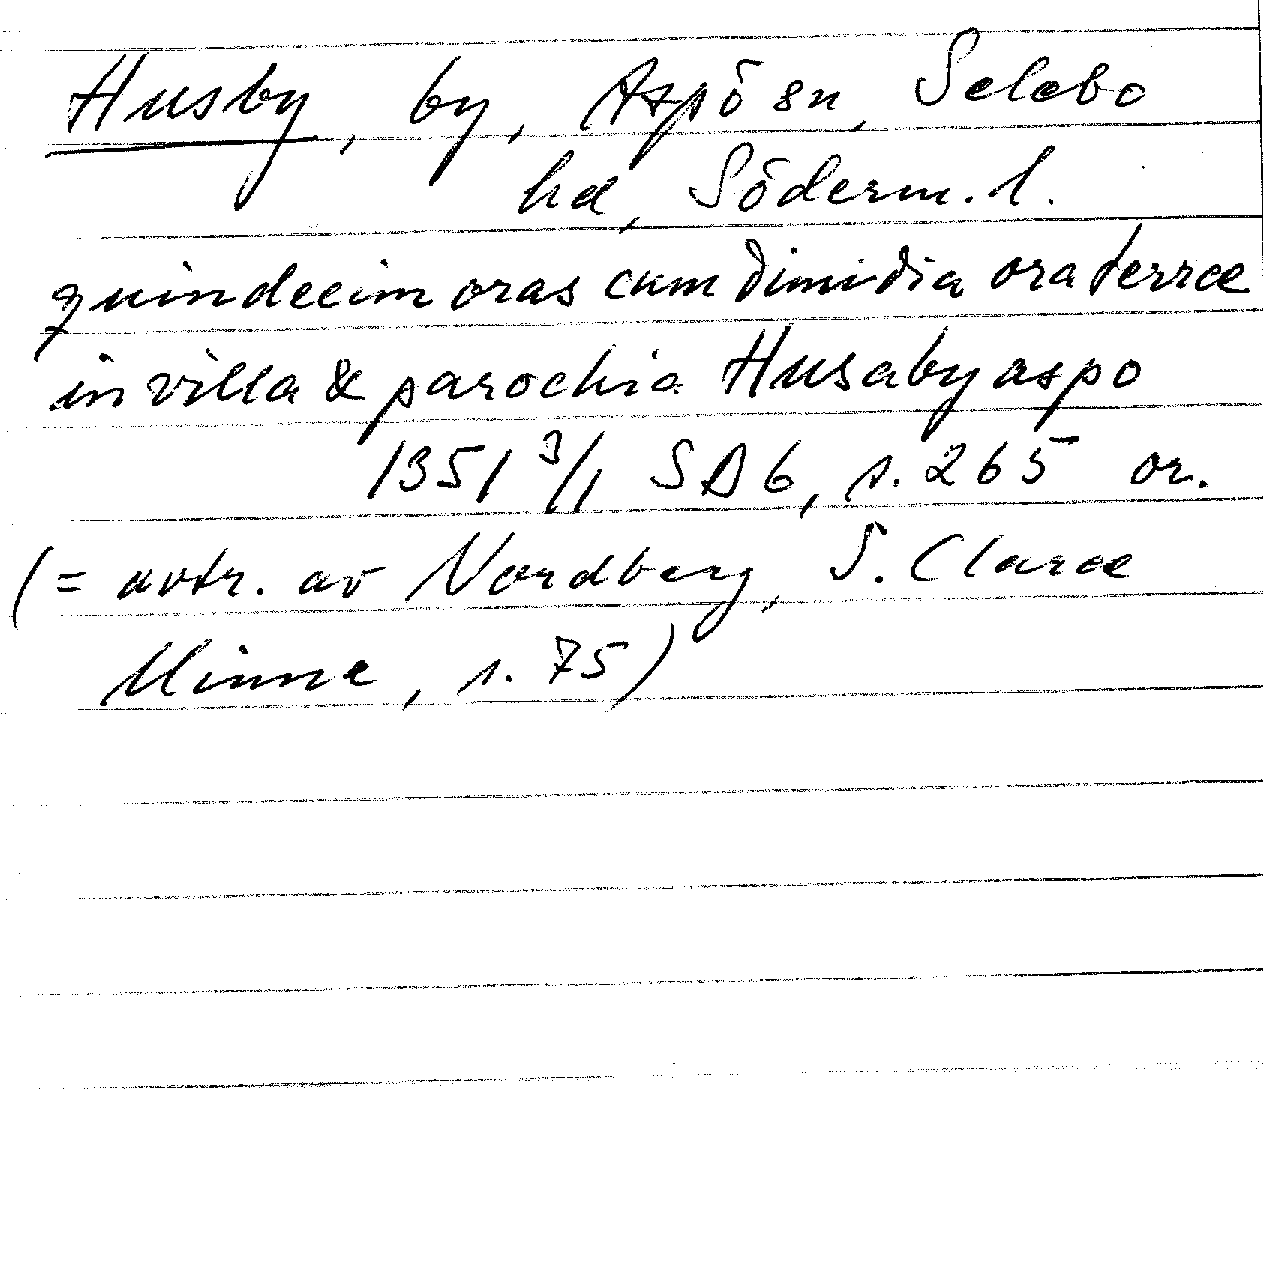 Husby, by, Aspö sn, Selebo
hd, Söderm. l.
quindecim oras cum dimidia ora terræ
in villa & parochia Husabyaspo
1351 3/1 SD 6, s. 265 or.
(= avtr. av Nordberg, S. Claræ
Minne, s. 75)